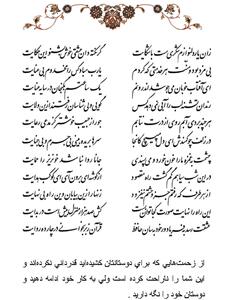 زان یار دلنوازم شکریست با شکایت گر نکته دان عشقی خوش بشنو این حکایت
بی مزد بود و منت هر خدمتی که کردم یارب مباد کس را مخدوم بی عنایت
ای آفتاب خوبان می جوشد اندرونم یک ساعتم بگنجان در سایه عنایت
رندان تشنه لب را آبی نمی دهد کس گویی ولی شناسان رفتند از این ولایت
هر چند بردی آبم روی از درت نتابم جور از حبیب خوشتر کز مدعی رعایت
در زلف چون کمندش ای دل مپیچ کانجا سرها بریده بینی بی جرم و بی جنایت
چشمت به غمزه ما را خون خورد و می پسندی جانا روا نباشد خونریز را حمایت
در این شب سیاهم گم گشت راه مقصود از گوشه ای برون آی ای کوکب هدایت
از هر طرف که رفتم جز وحشتم نیفزود زنهار از این بیابان وین راه بی نهایت
این راه را نهایت صورت کجا توان بست کش صد هزار منزل بیش است در بدایت
عشقت رسد به فریاد ور خود بسان حافظ قرآن ز بر بخوانی در چارده روایت
از زحمت‌هایی که برای دوستانتان کشیده‌اید قدردانی نکرده‌اند و
این شما را ناراحت کرده است ولی به کار خود ادامه دهید و
دوستان خود را نگه دارید .